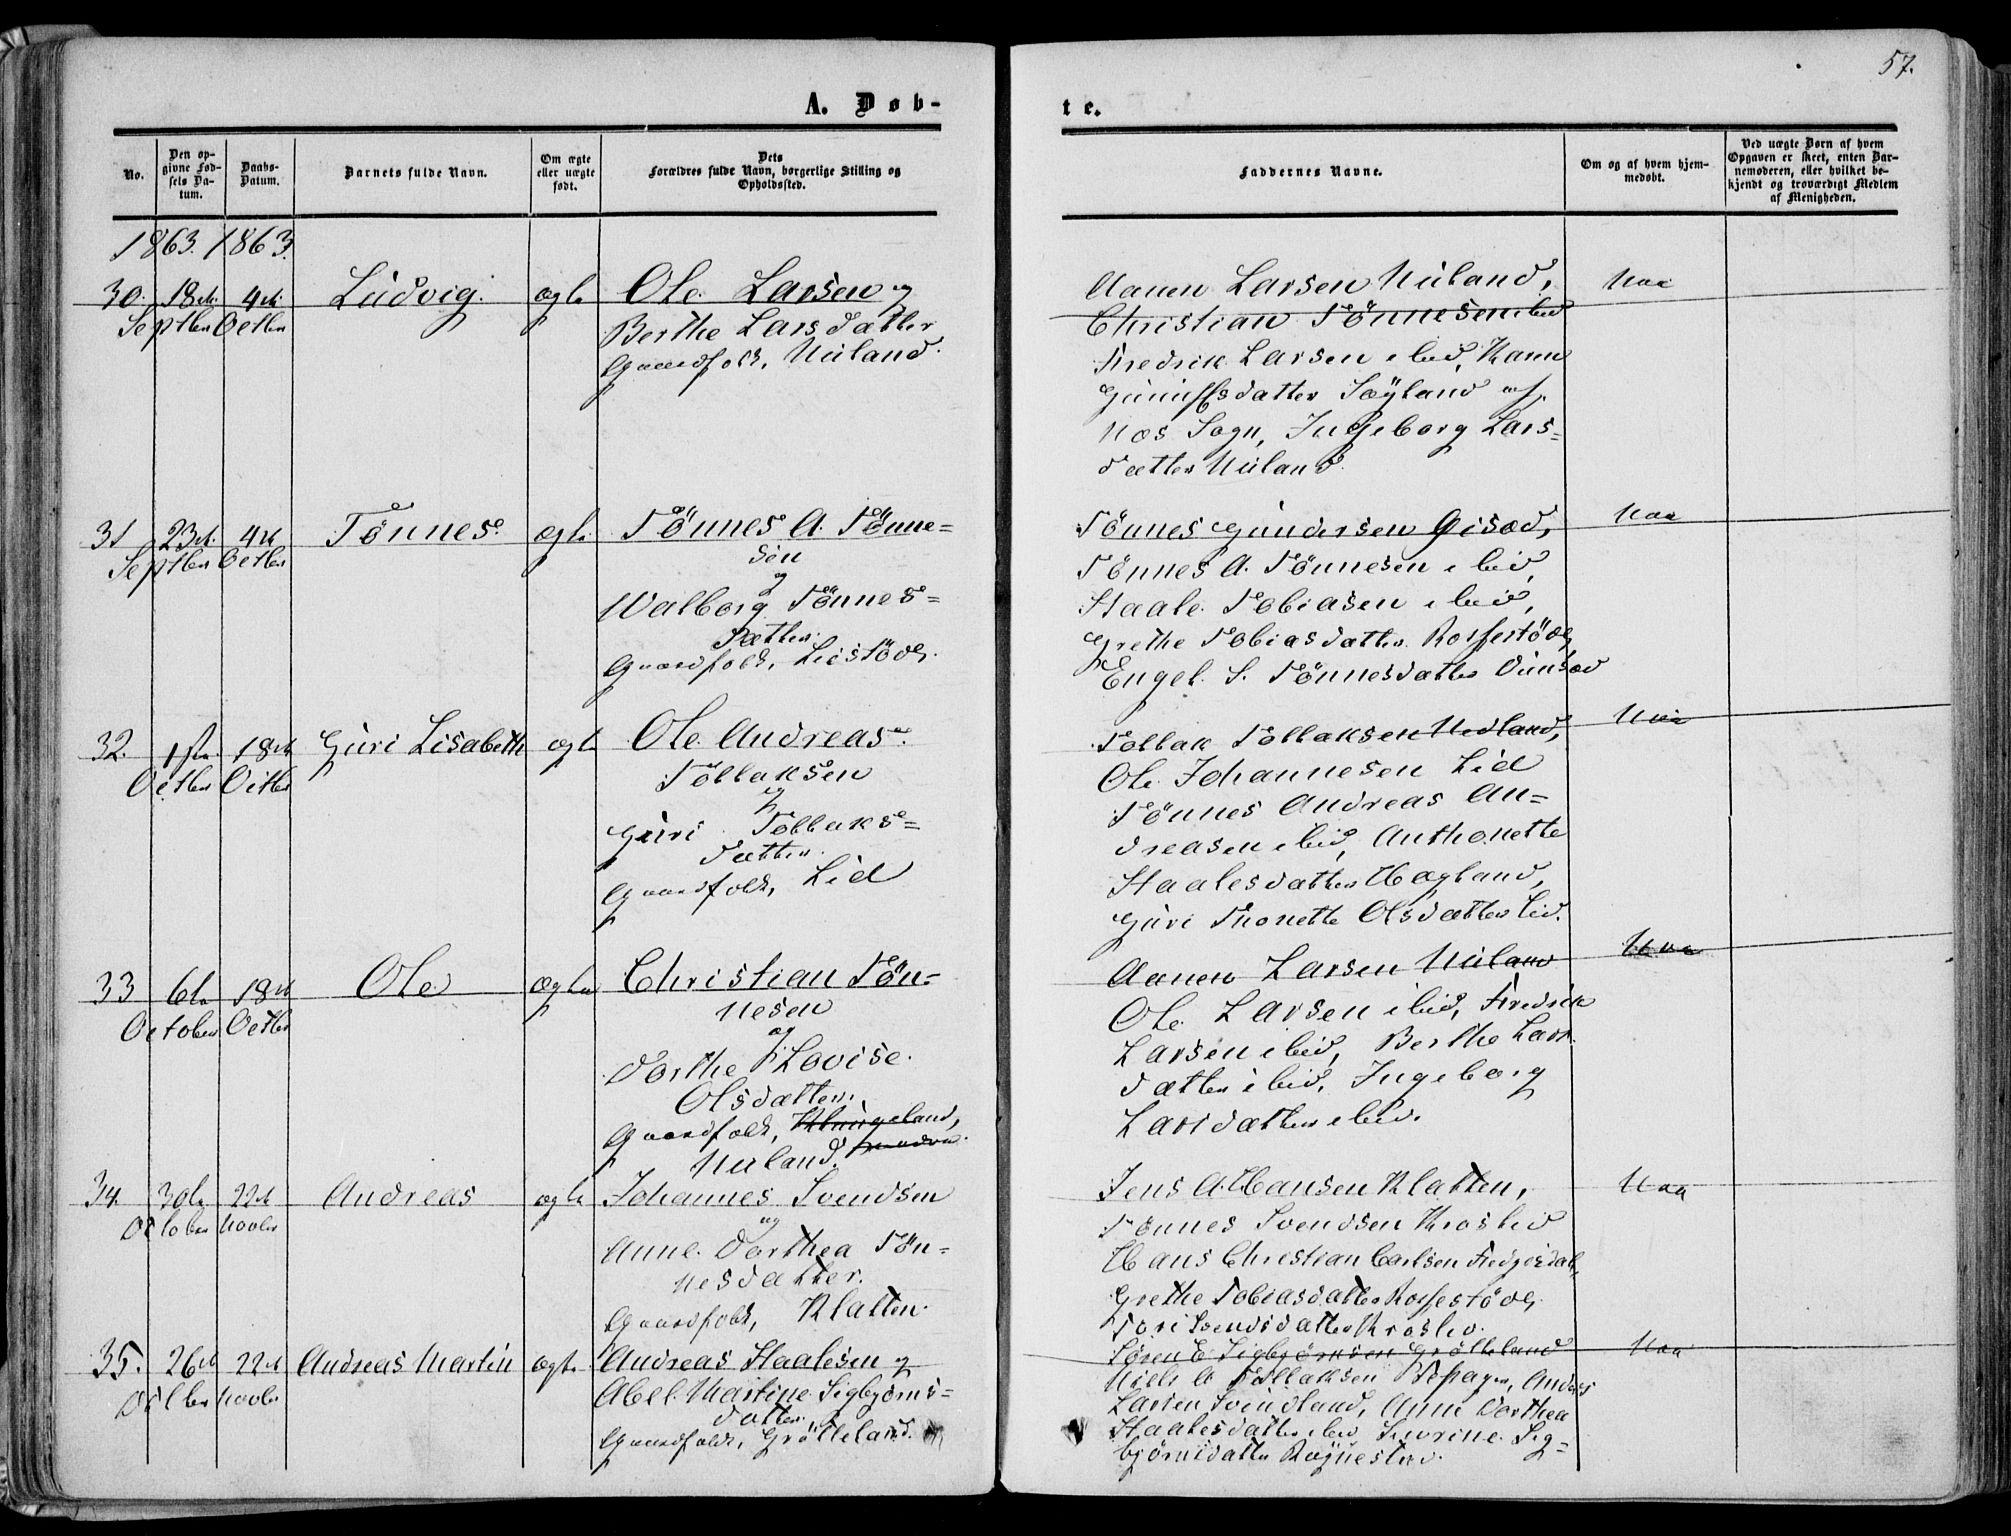 57.
A. Døb-
te.
No.
Den op-
givne Fød-
sels Da-
tum.
Daabs-
Datum.
Barnets fulde Navn.
Om ægte
eller uægte
født.
Dets
Forældres fulde Navn, borgerlige Stilling og
Opholdssted.
Faddernes Navne.
Om og af hvem hjem-
medøbt.
Ved uægte Børn af hvem
Opgaven er skeet, enten Bar-
nemoderen, eller hvilket be-
kjendt og troværdigt Medlem
af Menigheden.
1863. 1863.
30. 18de 4de Ludvig. ægte Ole Larsen og
Septbr Octbr Berthe Larsdatter
Gaardfolk, Nuland.
Aanen Larsen Nuland,
Christian Tønnesen ibid
Fredrik Larsen ibid, Karen
Søyland af
Næs Sogn, Ingeborg Lars-
datter Nuland.
31 23de 4de Tønnes. ægte Tønnes A. Tønne-
Septbr Octbr sen
og
Walborg Tønnes-
datter
Gaardfolk, Listöd.
Tønnes Gundersen
Tønnes A. Tønnesen ibid,
Staale Tobiasen ibid,
Grethe Tobiasdatter Rossestöd,
Engel S. Tønnesdatter
32. 1ste 18de Guri Lisabeth ægte Ole Andreas
Octbr Octbr Tollaksen
og
Guri Tollaks-
datter
Gaardfolk, Lid
Tollak Tollaksen Nedland,
Ole Johannesen Lid
Tønnes Andreas An-
dreasen ibid, Anthonette
Staalesdatter Hægland,
Guri Thonette Olsdatter Lid.
33 6te 18de Ole ægte Christian Tøn-
October Octbr nesen
og
Dorthe Lovise
Olsdatter.
Gaardfolk, Klungeland,
Nuland.
Aanen Larsen Nuland
Ole Larsen ibid, Fredrik
Larsen ibid, Berthe Lars
datter ibid, Ingeborg
Larsdatter ibid.
34. 30te 22de Andreas ægte Johannes Svendsen
October Novbr og
Anne Dorthea Tøn-
nesdatter.
Gaardfolk, Klatten.
Jens A. Hansen Klatten,
Tønnes Svendsen Kroslid
Hans Christian Carlsen
Grethe Tobiasdatter Rossestöd,
Tori Svendsdatter Kroslid.
35. 26de 22de Andreas Martin ægte Andreas Staalesen og
Octbr Novbr Abel Martine Sigbjørns-
datter
Gaardfolk, Grötteland.
Søren E. Sigbjørnsen Grötteland
Niels A Tollaksen Anders
Larsen Svindland, Anne Dorthea
Staalesdatter ibid, Severine Sig-
bjørnsdatter
Naa
Naa
Naa
Naa
Naa
Naa